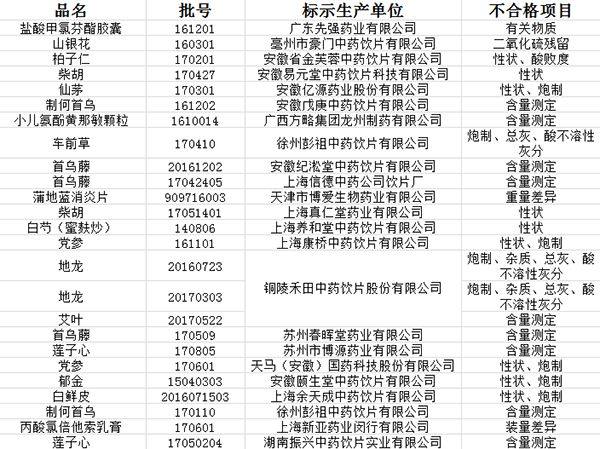 品名 批号 标示生产单位 不合格项目
盐酸甲氯芬酯胶囊 161201 广东先强药业有限公司 有关物质
山银花 160301 亳州市豪门中药饮片有限公司 二氧化硫残留
柏子仁 170201 安徽省金芙蓉中药饮片有限公司 性状、酸败度
柴胡 170427 安徽易元堂中药饮片科技有限公司 性状
仙茅 170301 安徽亿源药业股份有限公司 性状、炮制
制何首乌 161202 安徽戊庚中药饮片有限公司 含量测定
小儿氨酚黄那敏颗粒 1610014 广西方略集团龙州制药有限公司 含量测定
车前草 170410 徐州彭祖中药饮片有限公司 炮制、总灰、酸不溶性
灰分
首乌藤 20161202 安徽纪淞堂中药饮片有限公司 含量测定
首乌藤 17042405 上海信德中药公司饮片厂 含量测定
蒲地蓝消炎片 909716003 天津市博爱生物药业有限公司 重量差异
柴胡 17051401 上海真仁堂药业有限公司 性状
白芍（蜜麸炒） 140806 上海养和堂中药饮片有限公司 含量测定
党参 161101 上海康桥中药饮片有限公司 性状、炮制
地龙 20160723 铜陵禾田中药饮片股份有限公司 炮制、杂质、总灰、酸
不溶性灰分
地龙 20170303 炮制、杂质、总灰、酸
不溶性灰分
艾叶 20170522 含量测定
首乌藤 170509 苏州春晖堂药业有限公司 含量测定
莲子心 170805 苏州市博源药业有限公司 含量测定
党参 170601 天马（安徽）国药科技股份有限公司 性状、炮制
郁金 15040303 安徽颐生堂中药饮片有限公司 性状、炮制
白鲜皮 2016071503 上海余天成中药饮片有限公司 性状、炮制
制何首乌 170110 徐州彭祖中药饮片有限公司 含量测定
丙酸氯倍他索乳膏 170601 上海新亚药业闵行有限公司 装量差异
莲子心 17050204 湖南振兴中药饮片实业有限公司 含量测定